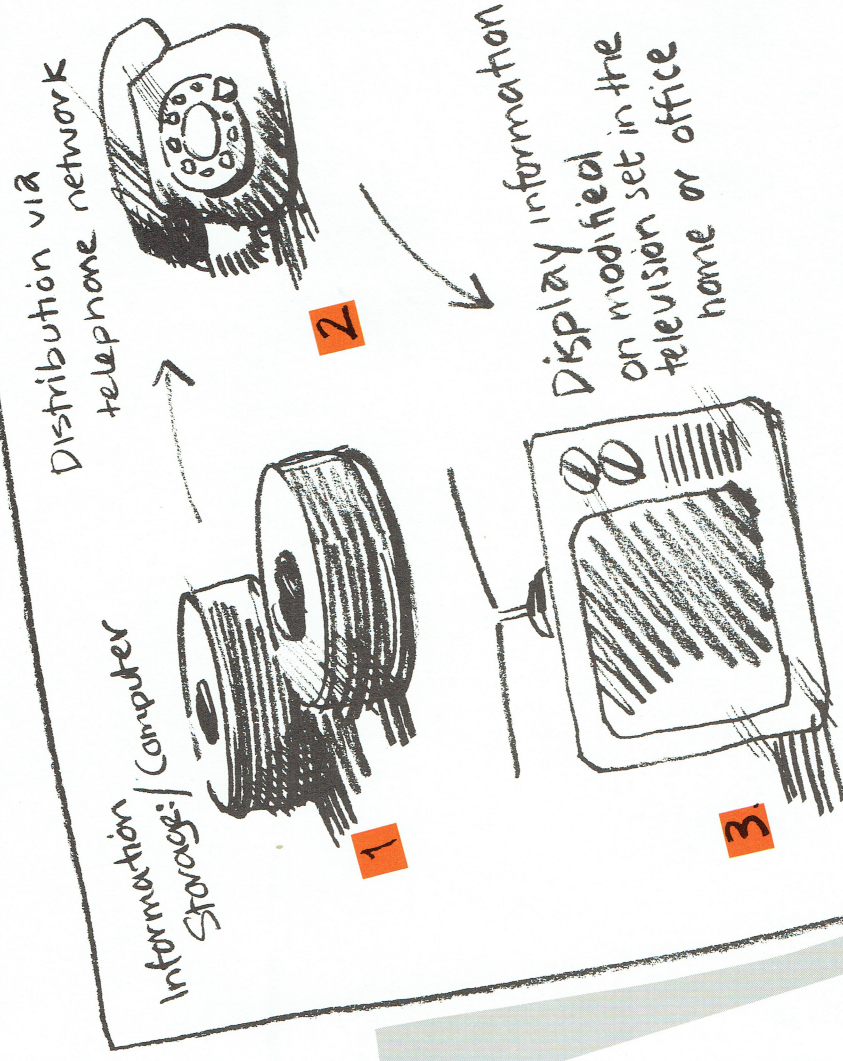 Information
Storage:/Computer
1
Distribution via
telephone network
2
Display information
on modified
television set in the
home or office
3.